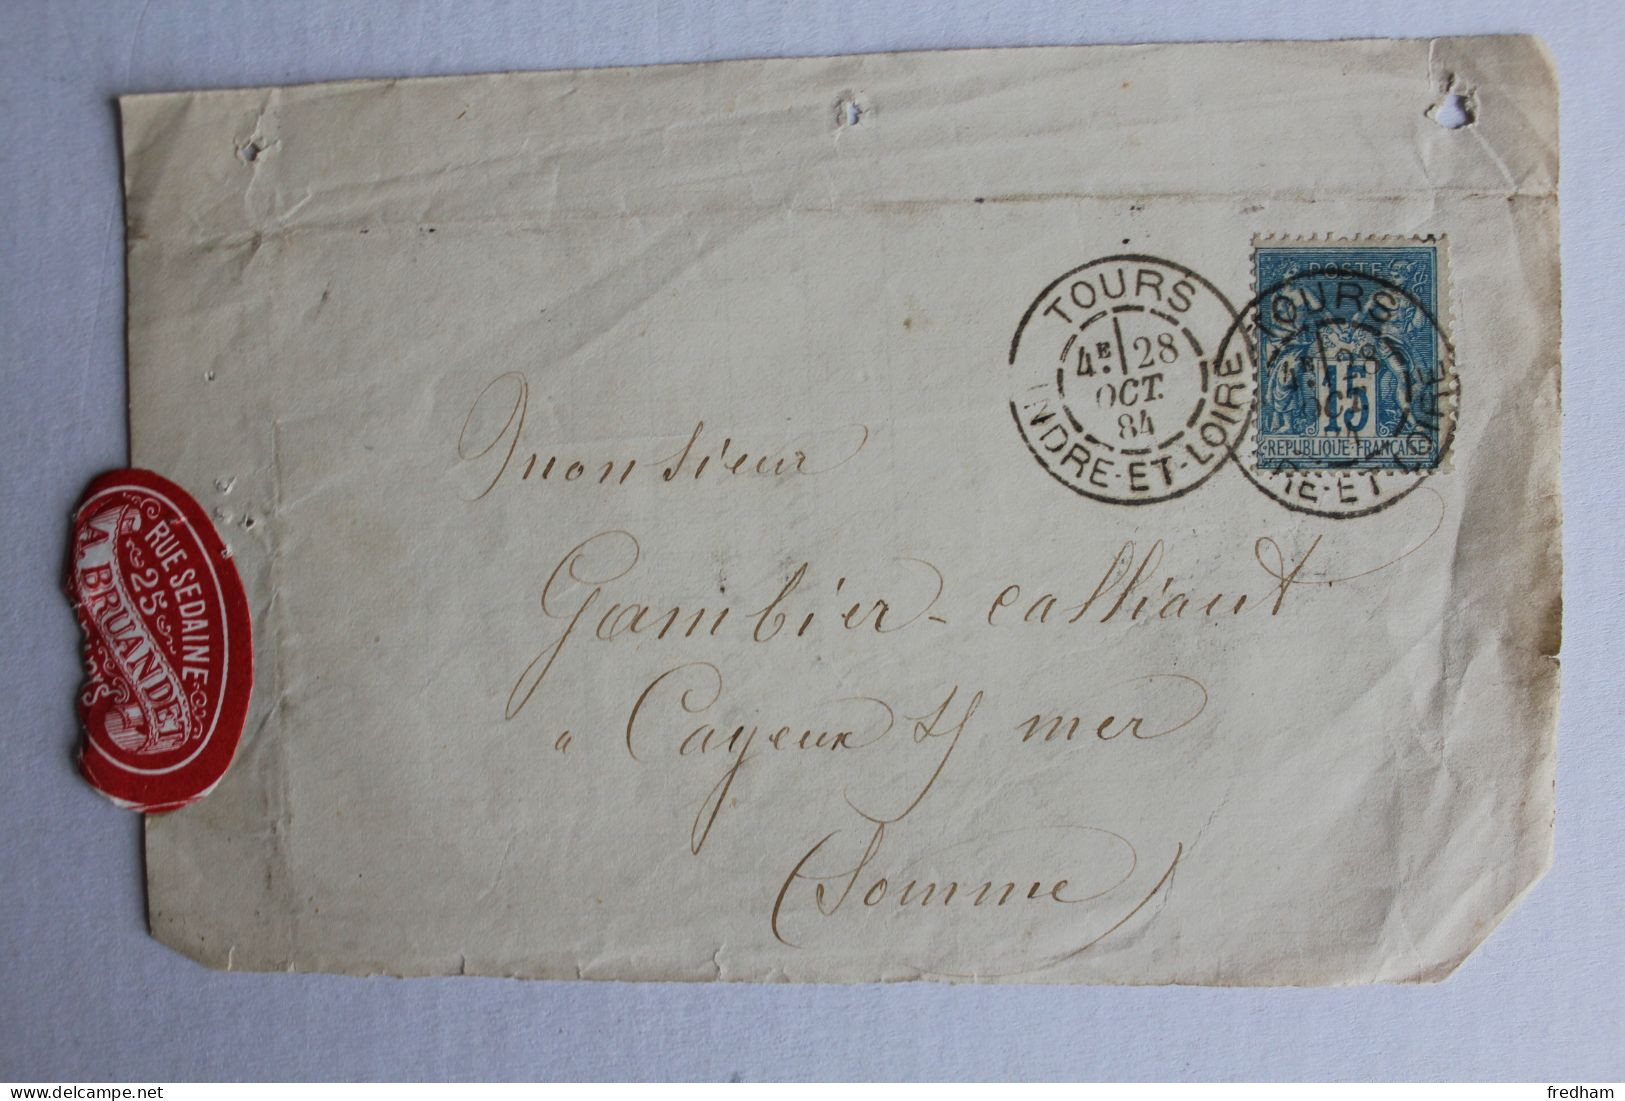 TOURS
4E 28
OCT.
84
INDRE-ET-LOIRE
POSTE
15
REPUBLIQUE FRANÇAISE
TOURS
4E 28
OCT
RE-ET-LOIRE
Monsieur
Gambier-Calliaut
a Cayeux s/ mer
(Somme)
RUE SEDAINE
25
A. BRUANDET
posted by
fredham